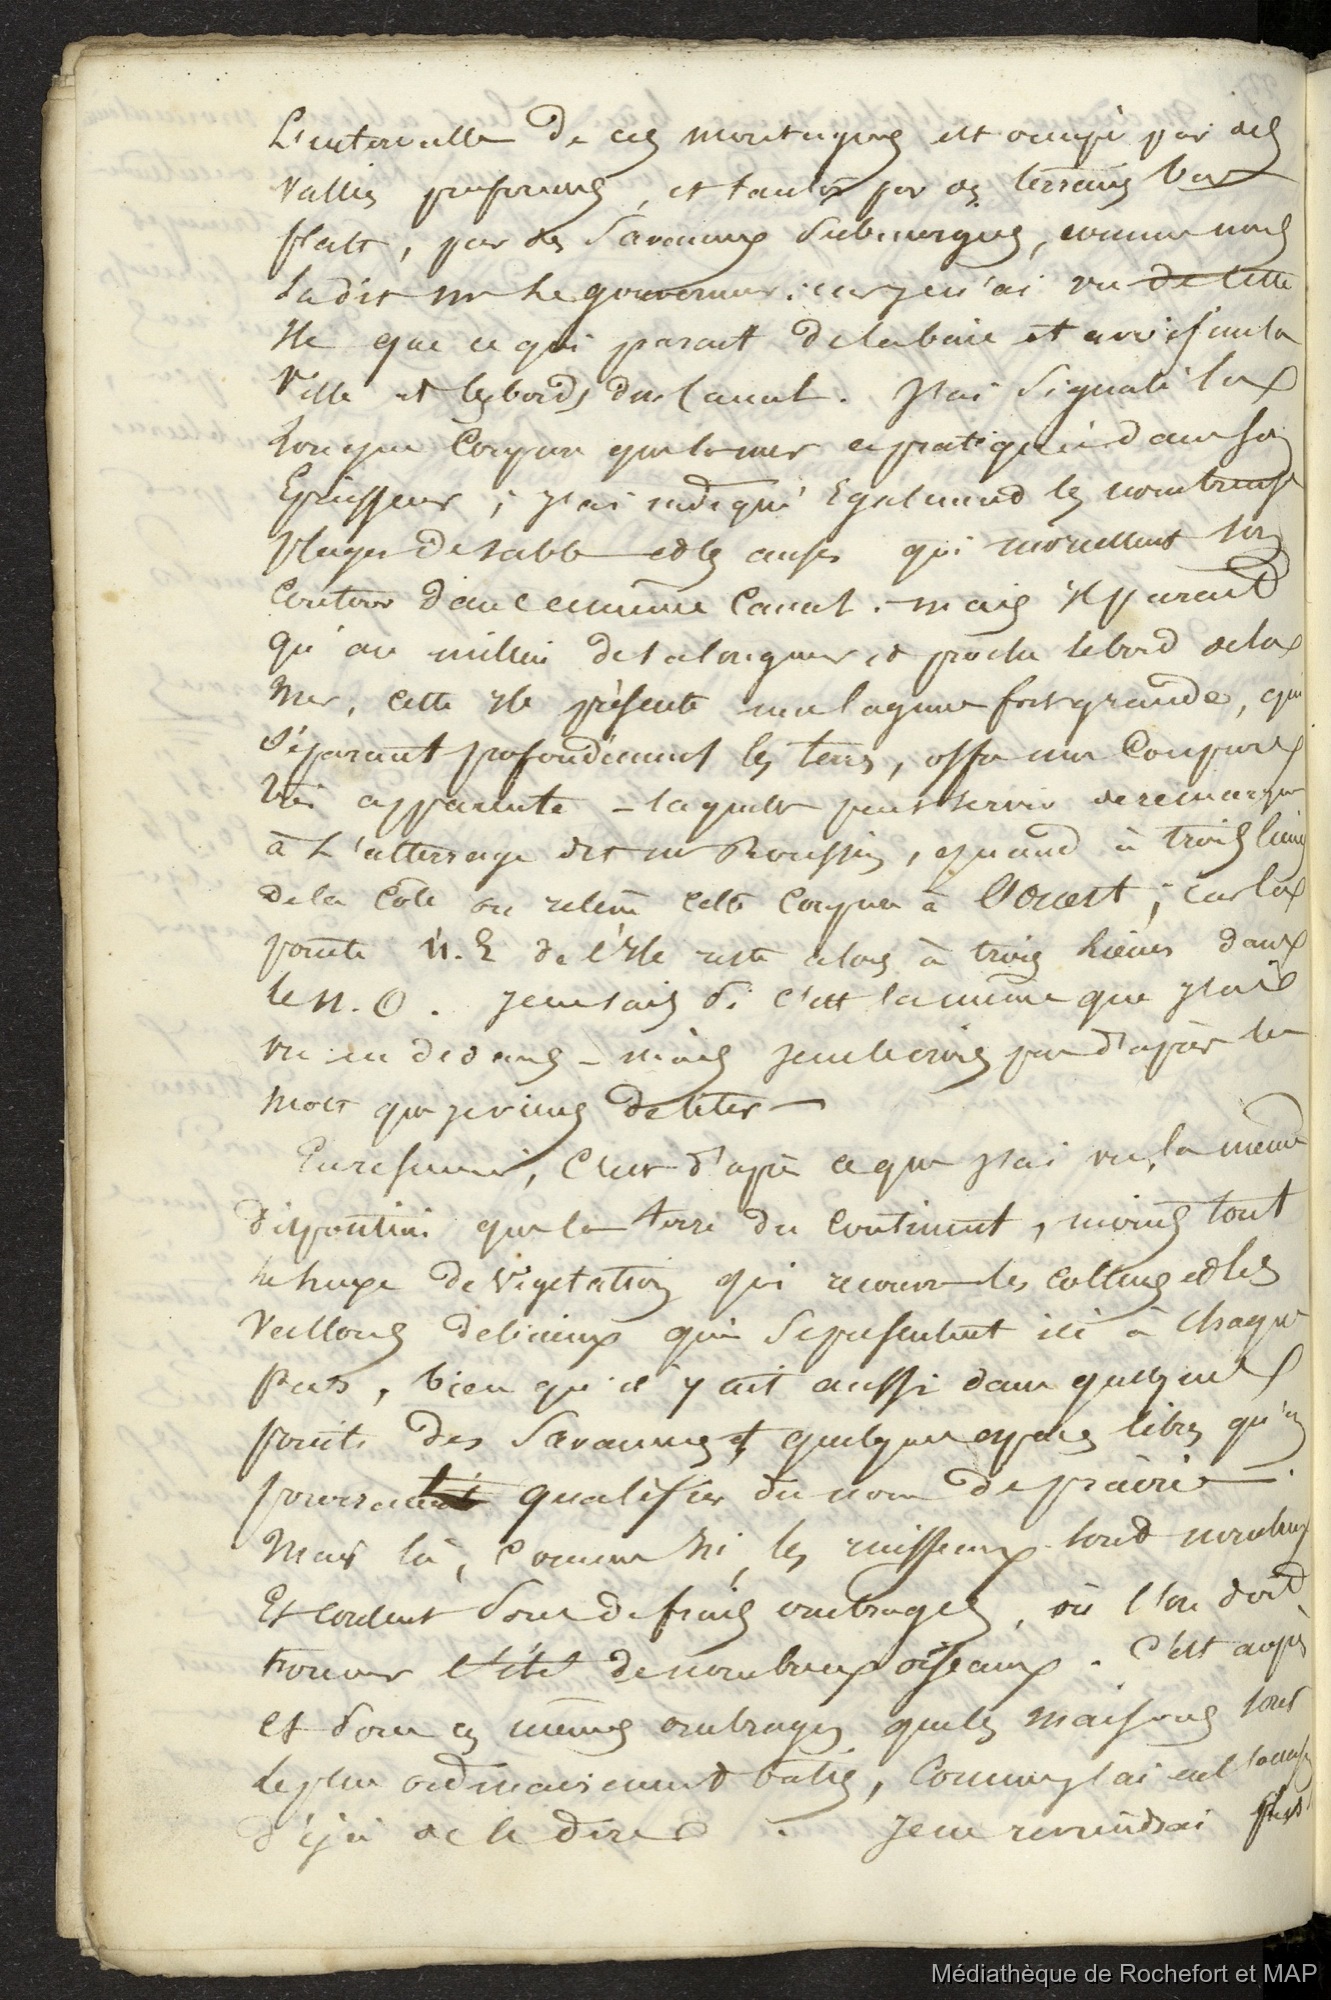 L'intervalle de ces montagnes est occupé par des
Vallées profondes, et tantôt par des terrains bas
plats, par des Savannes submergées, comme nous
l'a dit mr le gouverneur; car je n'ai vu de cette
Ile que ce qui parait de la baie et avoisine la
Ville et les bords du Canal. J'ai signalé la
longue Coupure que la mer a pratiquée dans son
Epaisseur; j'ai indiqué Egalement les nombreuses
plages de sable et les anses qui morcellent son
Contour dans ce même Canal. - mais il parait
qu'au milieu de sa longueur et proche le bord de la
Mer, cette Ile présente une lagune fort grande, qui
séparant profondément les terres, offre une Coupure
très apparente - laquelle peut servir de remarque
à L'atterrage dit mr Roussin, quand à trois lieues
de la Côte on relève cette Coupure à l'ouest; car la
pointe N.E de l'Ile reste alors à trois lieues dans
le N.O. Je ne sais si c'est la même que j'ai
vu en dedans - mais je ne le crois pas d'après les
mots que je viens de citer -
En resumé, C'est d'après ce que j'ai vu, la même
disposition que la terre du Continent, moins tout
le luxe de Végétation qui recouvre les Collines et les
Vallons délicieux qui se présentent ici à chaque
pas, bien qu'il y ait aussi dans quelques
points des Savannes et quelques espaces libres qu'on
pourrait qualifier du nom de prairie.
Mais là, Comme ici, les ruisseaux sont nombreux
Et coulent sous de frais ombrages, où l'on doit
trouver l'été de nombreux oiseaux. C'est auprès
et sous ces mêmes ombrages que les Maisons sont
le plus ordinairement bâties, Comme j'ai eu l'occasion
déjà de le dire. Je ne reviendrai plus
Médiathèque de Rochefort et MAP